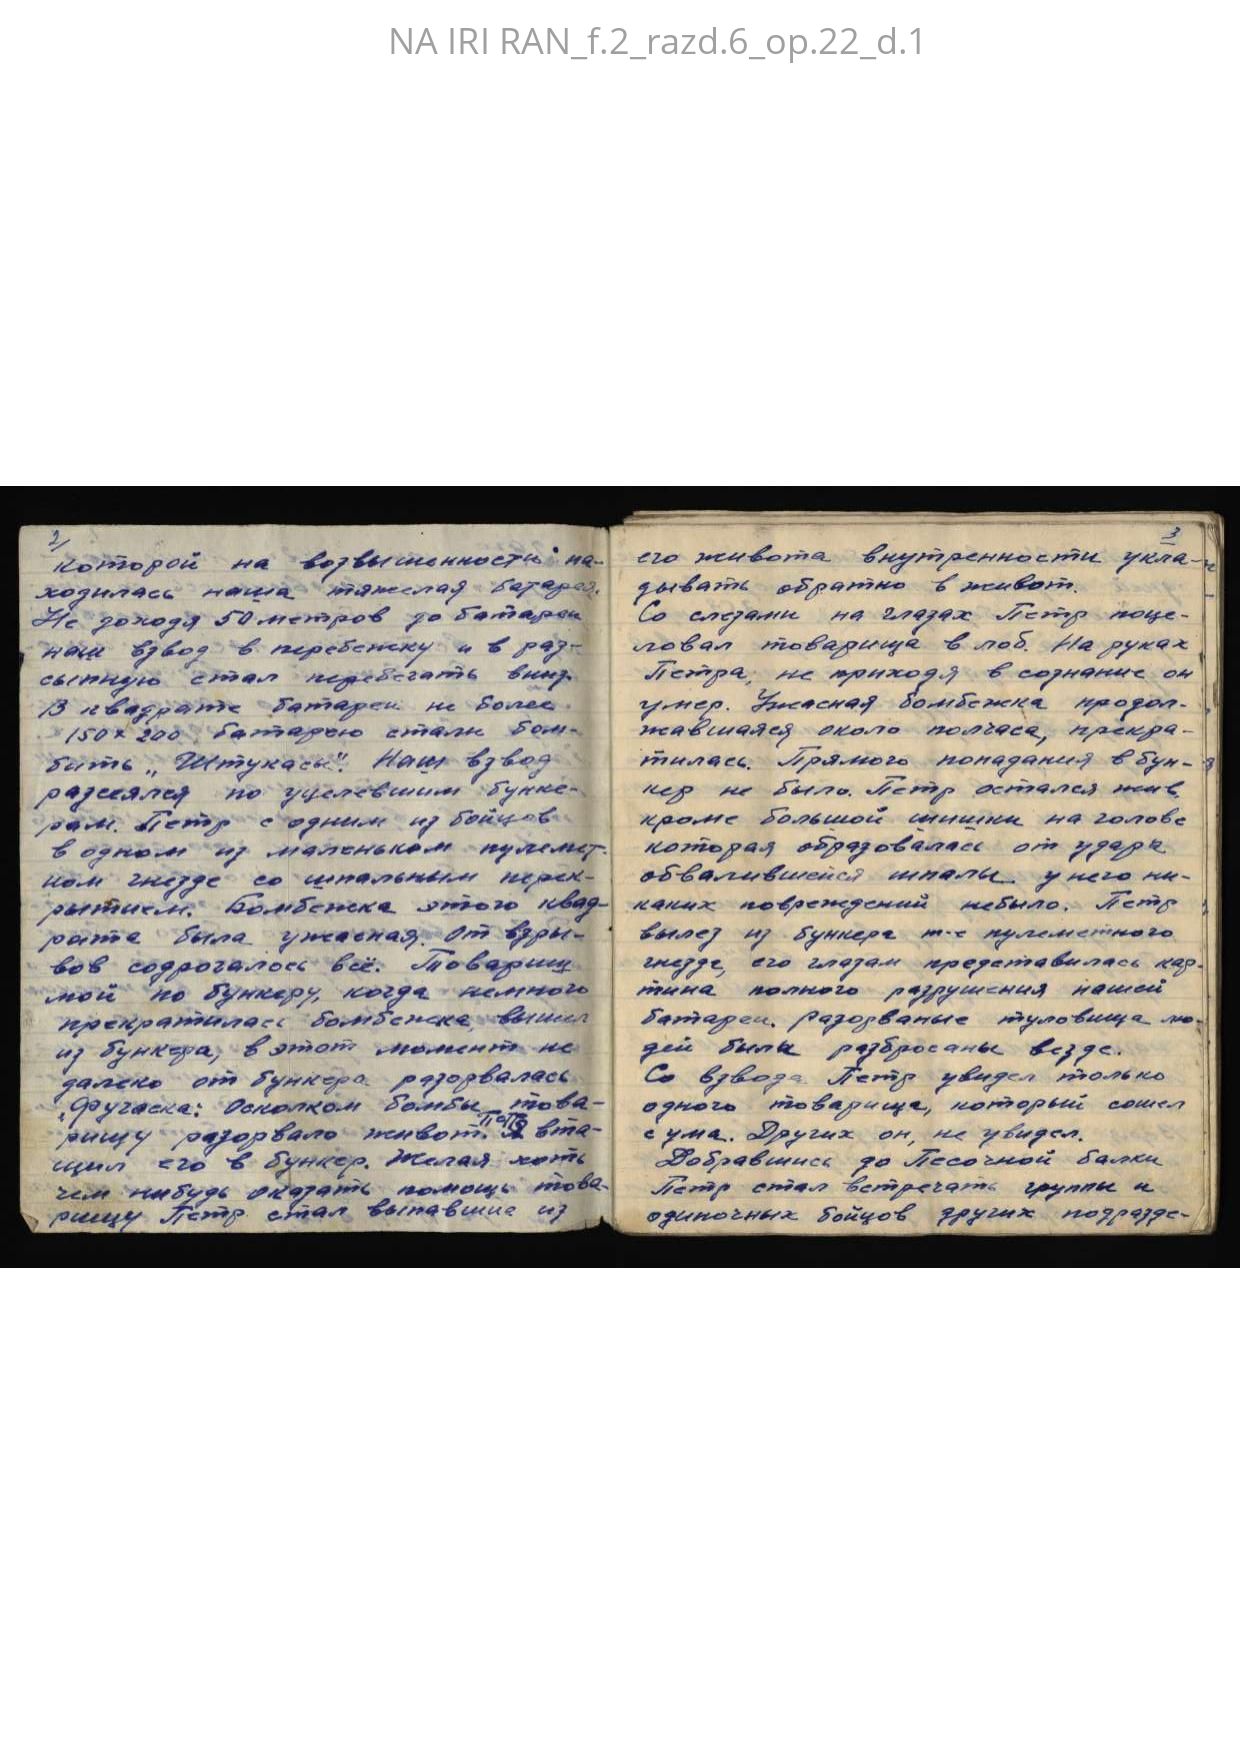 NA IRI RAN_f.2_razd.6_op.22_d.1
2/
которой на возвышенности на-
ходилась наша тяжелая батарея.
Не доходя 50 метров до батареи
наш взвод в перебежку и в раз-
сыпную стал перебегать вниз.
В квадрате батареи не более
150 х 200 батарею стали бом-
бить „Штукасы". Наш взвод
разсеялся по уцелевшим бунке-
рам. Петр с одним из бойцов
в одном из маленьком пулемет-
ном гнезде со шпальным перек-
рытием. Бомбежка этого квад-
рата была ужасная. От взры-
вов содрогалось всё. Товарищ
мой по бункеру, когда немного
прекратилась бомбежка, вышел
из бункера, в этот момент не
далеко от бункера разорвалась
„Фугаска: Осколком бомбы това-
рищу разорвало живот. Петр вта-
щил его в бункер. Желая хоть
чем нибудь оказать помощь това-
рищу Петр стал выпавшие из
3
его живота внутренности укла-
дывать обратно в живот.
Со слезами на глазах Петр поце-
ловал товарища в лоб. На руках
Петра, не приходя в сознание он
умер. Ужасная бомбежка продол-
жавшаяся около полчаса, прекра-
тилась. Прямого попадания в бун-
кер не было. Петр остался жив
кроме большой шишки на голове
которая образовалась от удара
обвалившейся шпалы у него ни-
каких повреждений небыло. Петр
вылез из бункера т-е пулеметного
гнезде, его глазам представилась кар-
тина полного разрушения нашей
батареи. Разорваные туловища лю-
дей были разбросаны везде.
Со взвода Петр увидел только
одного товарища, который сошел
с ума. Других он, не увидел.
Добравшись до Песочной балки
Петр стал встречать группы и
одиночных бойцов других подразде-